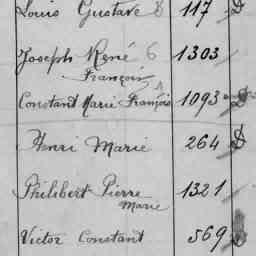 Louis Gustave 8 117 D
Joseph René 6 1303
François
Constant Marie François 1093 D
Henri Marie 264 D
Philibert Pierre 1321
Marie
Victor Constant 569 D